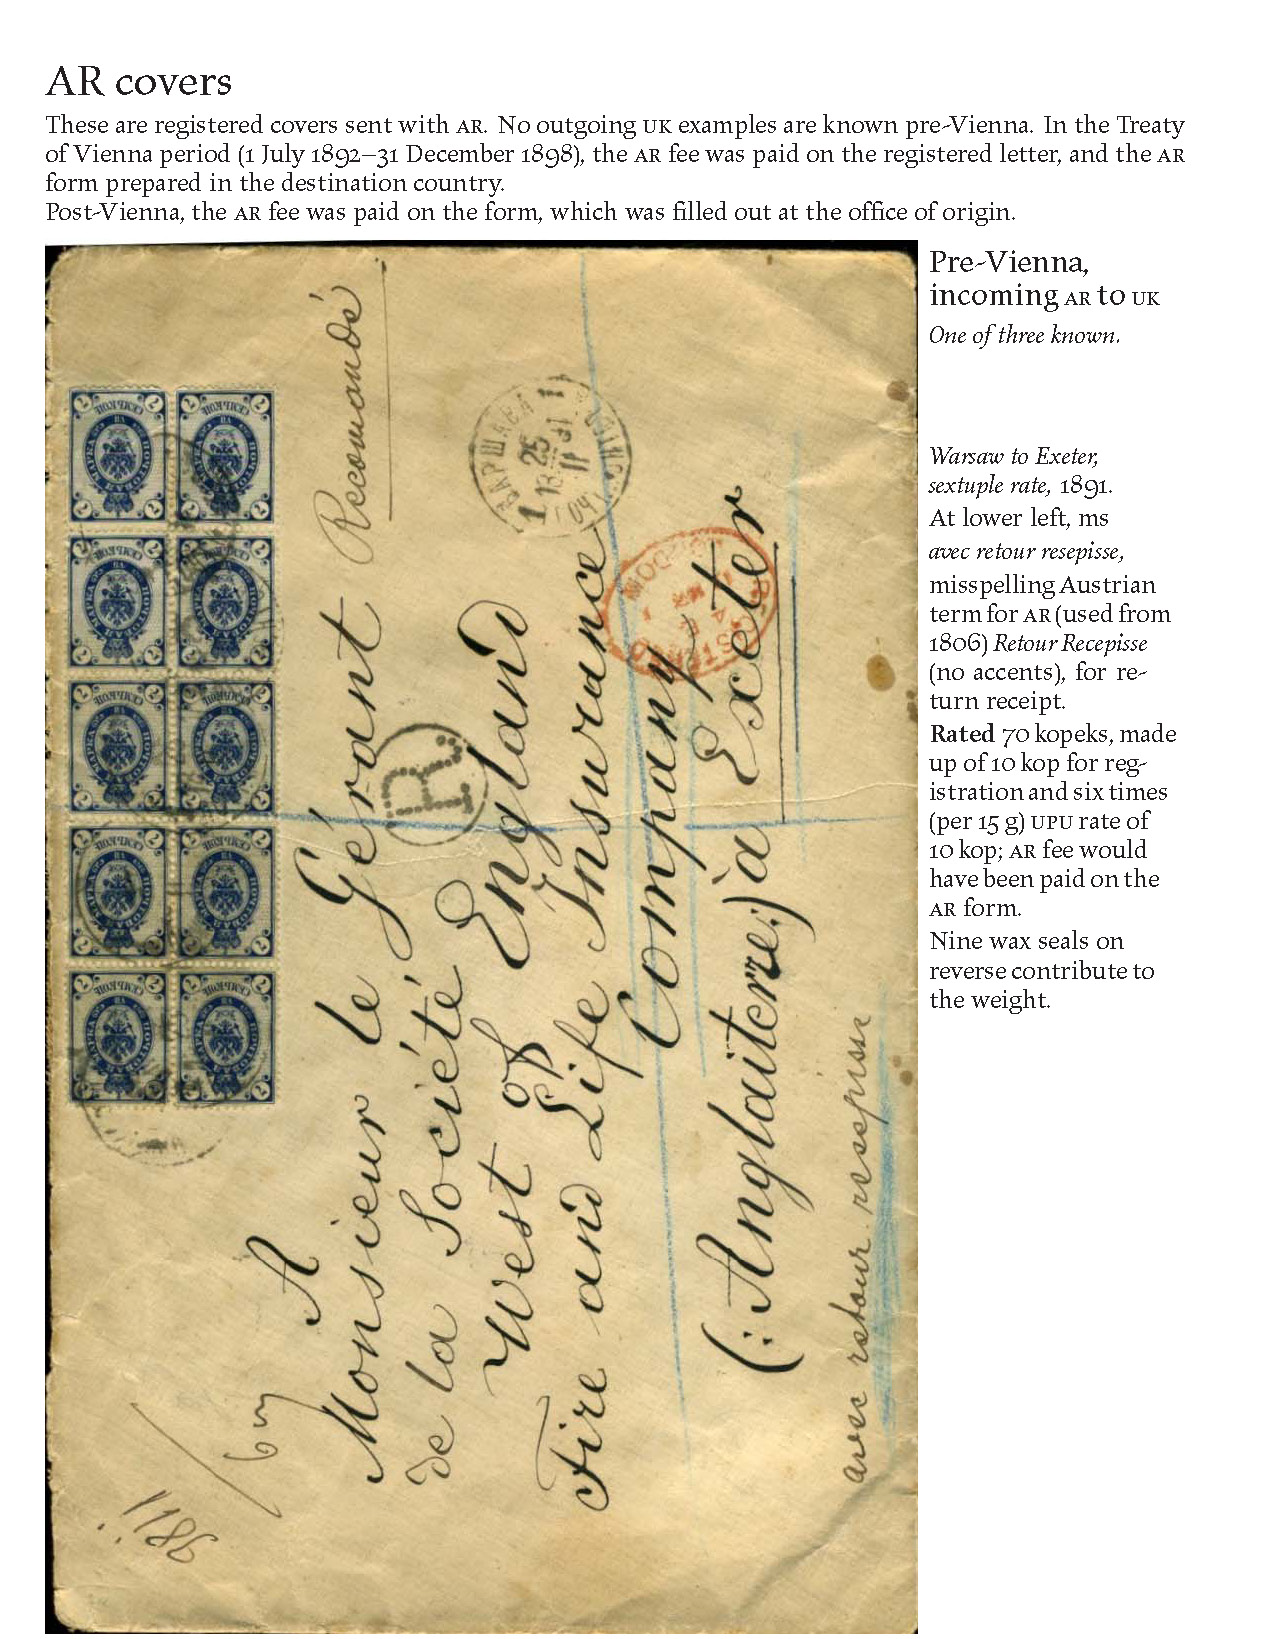 AR covers
These are registered covers sent with AR. No outgoing UK examples are known pre-Vienna. In the Treaty
of Vienna period (1 July 1892–31 December 1898), the AR fee was paid on the registered letter, and the AR
form prepared in the destination country.
Post-Vienna, the AR fee was paid on the form, which was filled out at the office of origin.
Pre-Vienna,
incoming AR to UK
One of three known.
Warsaw to Exeter,
sextuple rate, 1891.
At lower left, ms
avec retour resepisse,
misspelling Austrian
term for AR (used from
1806) Retour Recepisse
(no accents), for re-
turn receipt.
Rated 70 kopeks, made
up of 10 kop for reg-
istration and six times
(per 15 g) UPU rate of
10 kop; AR fee would
have been paid on the
AR form.
Nine wax seals on
reverse contribute to
the weight.
Recomandé
ВАРШАВА
25
R
A
Monsieur le Gérant
de la Société
West of England
Fire and Life Insurance
Company
(: Anglaiterre:) à Exeter
avec retour resepisse